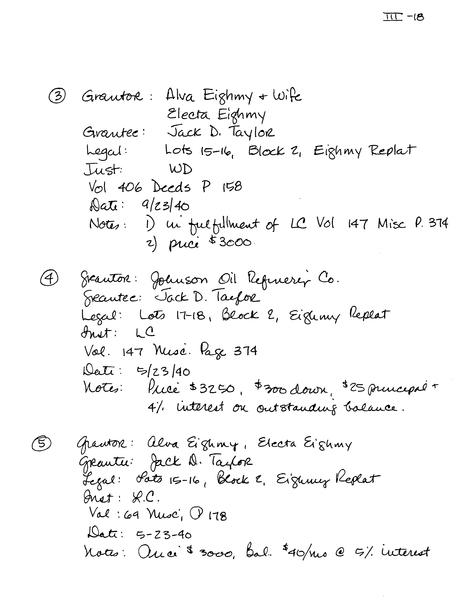 III-18
③ Grantor: Alva Eighmy + Wife
Electa Eighmy
Grantee: Jack D. Taylor
Legal: Lots 15-16, Block 2, Eighmy Replat
Inst: WD
Vol 406 Deeds P 158
Date: 9/23/40
Notes: 1) in fulfillment of LC Vol 147 Misc P. 374
2) price $3000
④ Grantor: Johnson Oil Refinery Co.
Grantee: Jack D. Taylor
Legal: Lots 17-18, Block 2, Eighmy Replat
Inst: LC
Vol. 147 Misc. Page 374
Date: 5/23/40
Notes: Price $3250, $300 down, $25 principal +
4% interest on outstanding balance.
⑤ Grantor: Alva Eighmy, Electa Eighmy
Grantee: Jack D. Taylor
Legal: Lots 15-16, Block 2, Eighmy Replat
Inst: L.C.
Vol: 69 Misc, P 178
Date: 5-23-40
Notes: Price $3000, Bal. $40/mo @ 5% interest